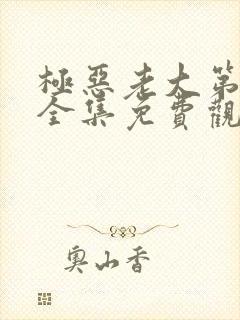 極惡老大第
全集免費觀
奧山香